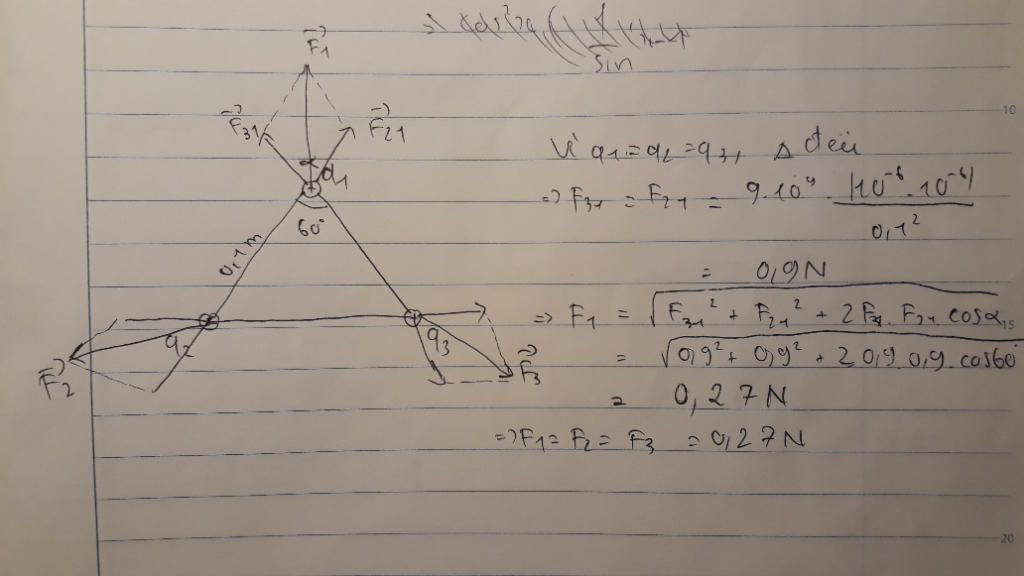 sin
F⃗1
F⃗31 F⃗21
α q1
60°
0,1m
q2 q3
F⃗2 F⃗3
10
Vì q1=q2=q3, Δ đều
=> F31 = F21 = 9.10⁹ . |10⁻⁶.10⁻⁶| / 0,1²
= 0,9N
=> F1 = √(F31² + F21² + 2F31.F21.cosα
15
= √(0,9² + 0,9² + 2.0,9.0,9.cos60°
= 0,27N
=> F1 = F2 = F3 = 0,27N
20